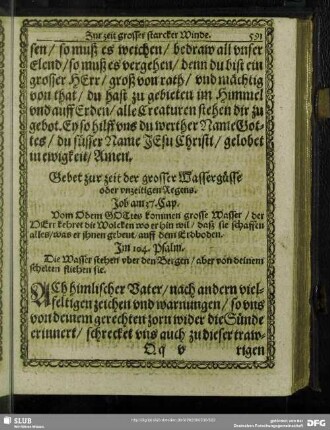 Zur zeit grosser starcker Winde. 591
sen / so muß es weichen / bedraw all vnser
Elend / so muß es vergehen / denn du bist ein
grosser HErr / groß von rath / vnd mächtig
von that / du hast zu gebieten im Himmel
vnd auff Erden / alle Creaturen stehen dir zu
gebot. Ey so hilff vns du werther Name Got-
tes / du süsser Name JEsu Christi / gelobet
in ewigkeit / Amen.
Gebet zur zeit der grosser Wassergüsse
oder vnzeitigen Regens.
Job am 37. Cap.
Vom Odem GOttes kommen grosse Wasser / der
HErr kehret die Wolcken wo er hin wil / daß sie schaffen
alles / was er jhnen gebeut / auff dem Erdboden.
Im 104. Psalm.
Die Wasser stehen vber den Bergen / aber von deinem
schelten fliehen sie.
ACh himlischer Vater / nach andern viel-
feltigen zeichen vnd warnungen / so vns
von deinem gerechten zorn wider die Sünde
erinnert / schrecket vns auch zu dieser traw-
Qq v rigen
SLUB
Wir führen Wissen.
gefördert von der
Deutschen Forschungsgemeinschaft
DFG